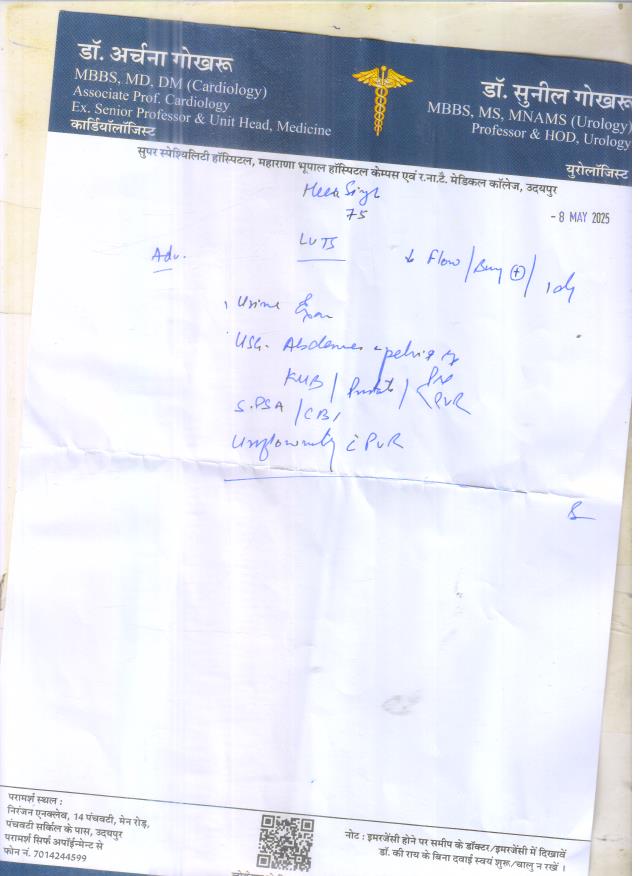 डॉ. अर्चना गोखरू
MBBS, MD, DM (Cardiology)
Associate Prof. Cardiology
Ex. Senior Professor & Unit Head, Medicine
कार्डियॉलॉजिस्ट
डॉ. सुनील गोखरू
MBBS, MS, MNAMS (Urology)
Professor & HOD, Urology
युरोलॉजिस्ट
सुपर स्पेश्यिलिटी हॉस्पिटल, महाराणा भूपाल हॉस्पिटल केम्पस एवं र.ना.टै. मेडिकल कॉलेज, उदयपुर
Singh
75
- 8 MAY 2025
LUTS
Adv.
↓ Flow / Burn ⊕ /
Urine
USG. Abdomen pelvis
KUB / Prostate / Pre
PVR
S.PSA / CBC
Uroflowmetry c̄ PVR
परामर्श स्थल :
निरंजन एनक्लेव, 14 पंचवटी, मेन रोड़,
पंचवटी सर्किल के पास, उदयपुर
परामर्श सिर्फ अपॉईन्मेन्ट से
फोन नं. 7014244599
नोट : इमरजेंसी होने पर समीप के डॉक्टर/इमरजेंसी में दिखावें
डॉ. की राय के बिना दवाई स्वयं शुरू/चालु न रखें ।